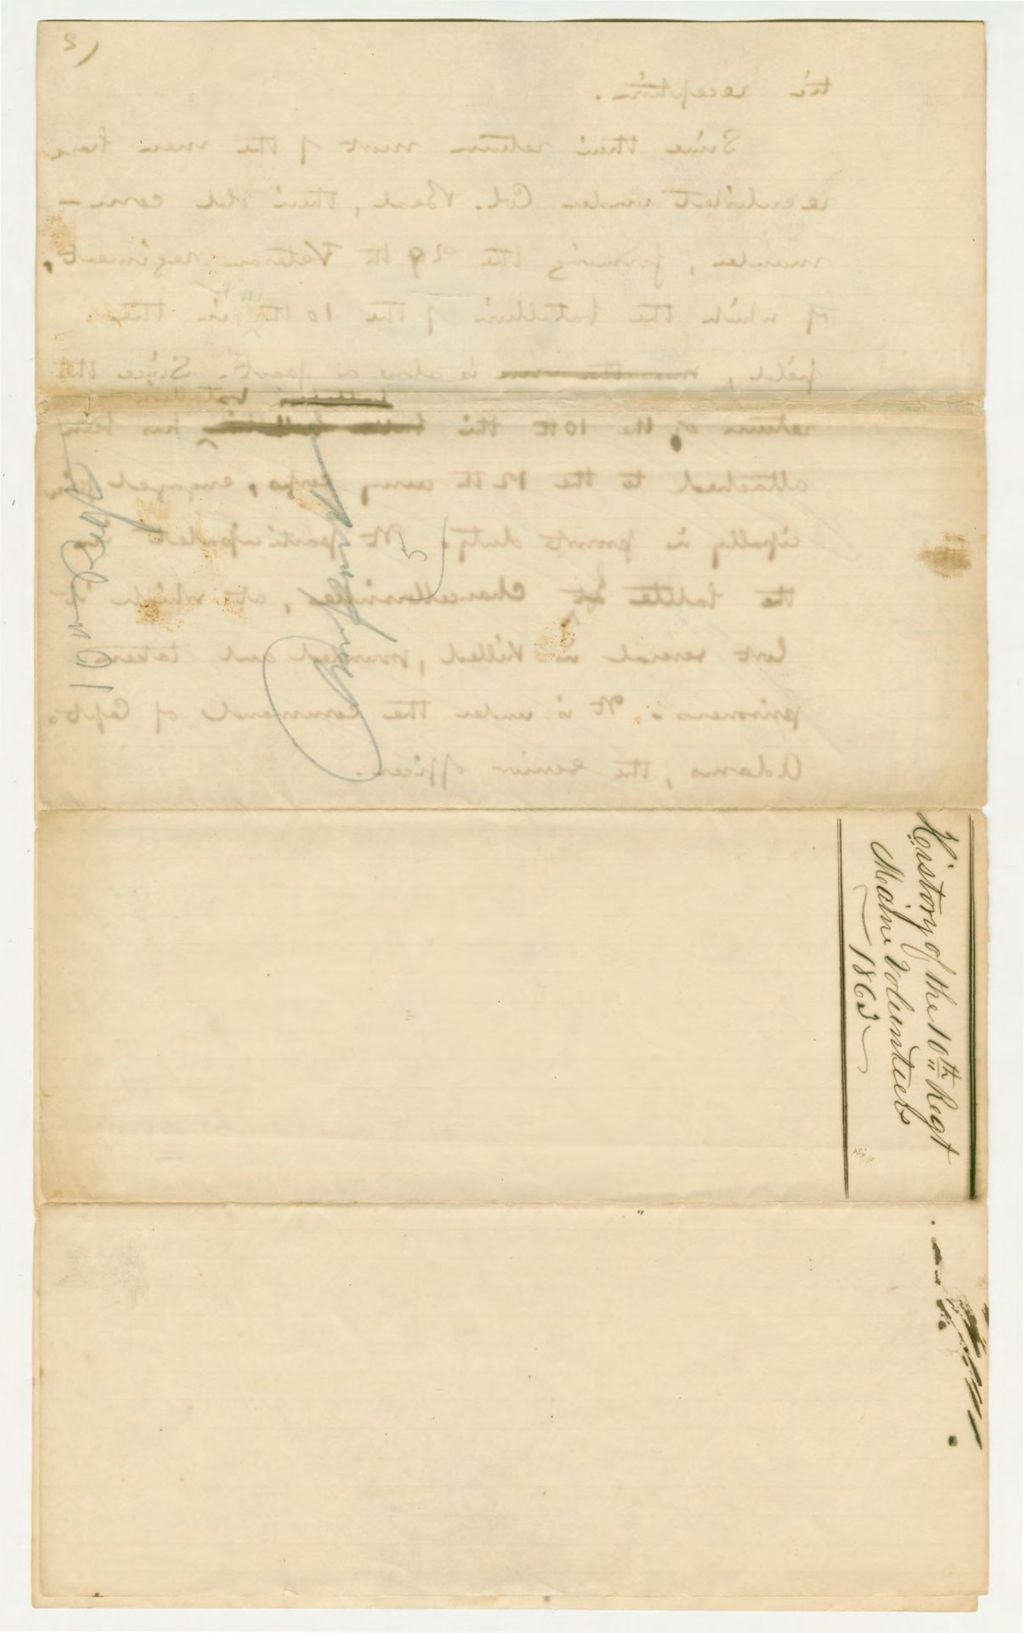 History of the 10th Regt
Maine Volunteers
1863
tic reception.
Since their return most of the men have
reenlisted under Col. Beal, their old com-
mander, forming the 29th Veteran regiment,
of which the batallion of the 10th in the
field, is also a part. Since the
return of the 10th this has been
attached to the 12th army corps, engaged
cipally in provost duty. It participated in
the battle at Chancellorsville, at which it
lost several in killed, wounded and taken
prisoners. It is under the command of Capt.
Adams, the senior officer.